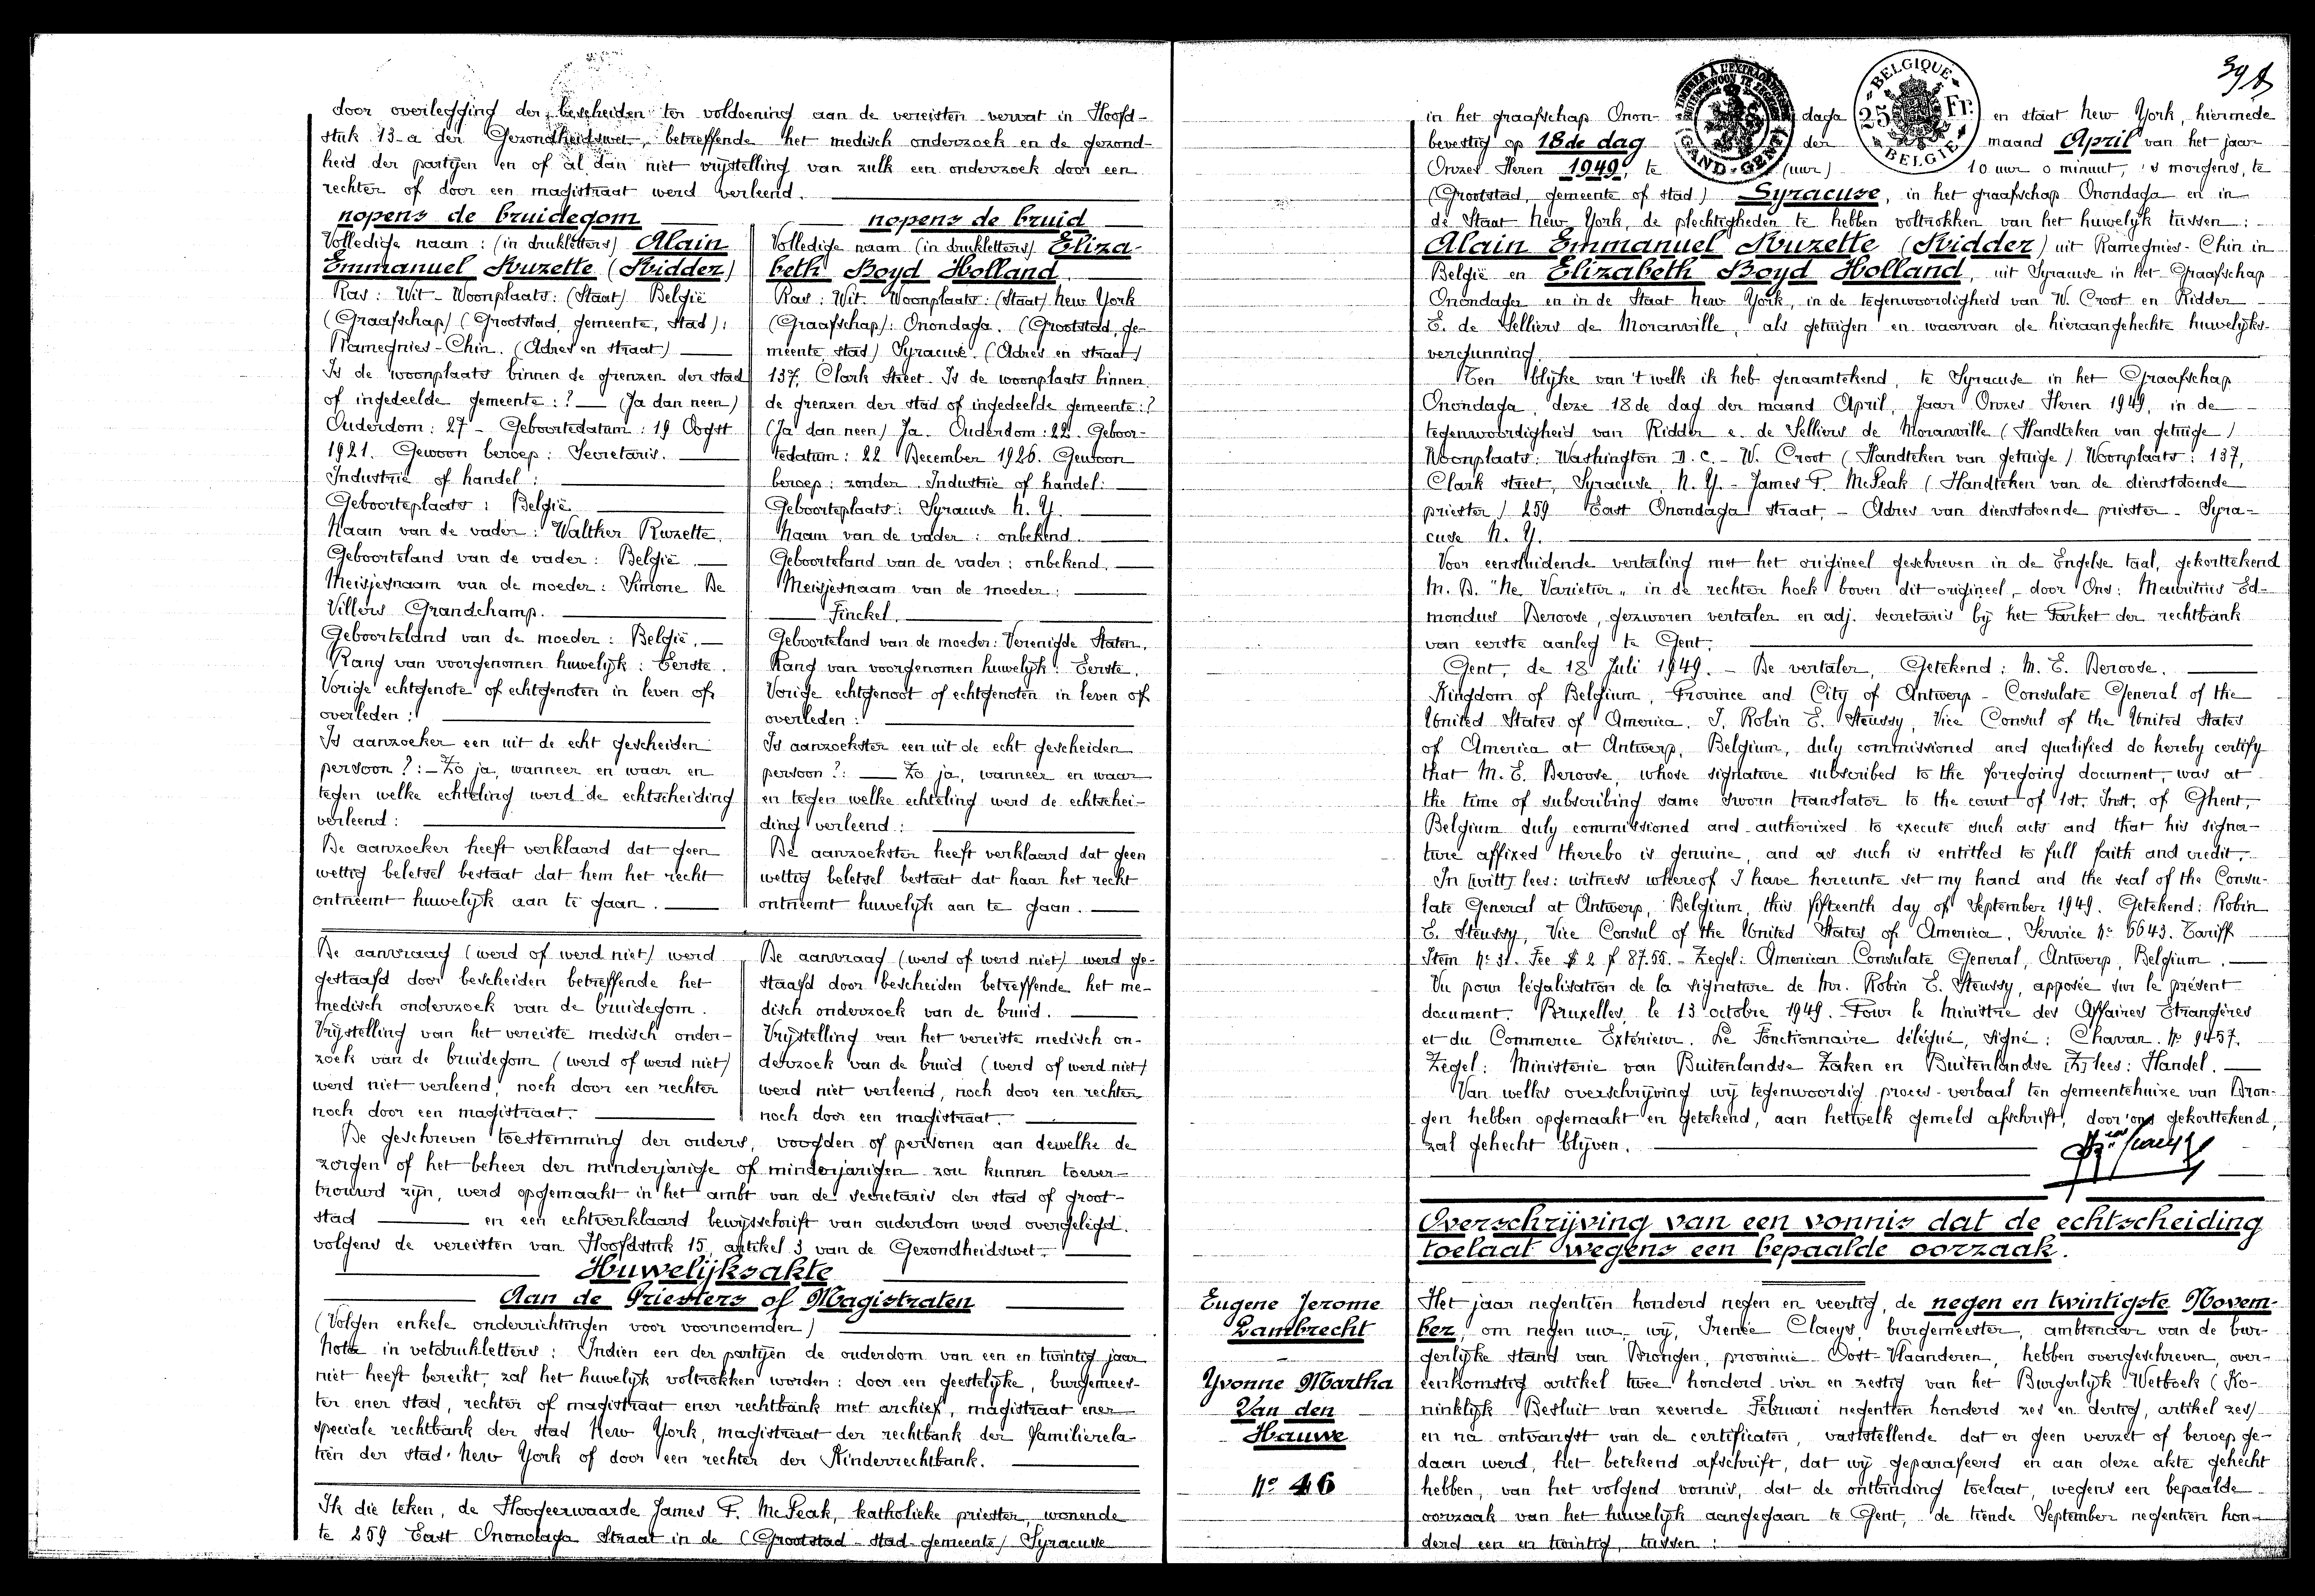 door overlegging der bescheiden ter voldoening aan de vereisten vervat in Hoofd-
stuk 13-a der Gezondheidswet, betreffende het medisch onderzoek en de gezond-
heid der partijen en of al dan niet vrijstelling van zulk een onderzoek door een
rechter of door een magistraat werd verleend.
nopens de bruidegom
Volledige naam : (in drukletters) Alain
Emmanuel Ruzette (Ridder)
Ras : Wit - Woonplaats : (Staat) België
(Graafschap) (Grootstad, gemeente, stad) :
Ramegnies-Chin. (Adres en straat)
Is de woonplaats binnen de grenzen der stad
of ingedeelde gemeente : ? — (Ja dan neen)
Ouderdom : 27 - Geboortedatum : 19 Oogst
1921. Gewoon beroep : Secretaris.
Industrie of handel :
Geboorteplaats : België.
Naam van de vader : Walther Ruzette.
Geboorteland van de vader : België.
Meisjesnaam van de moeder : Simone De
Villers Grandchamp.
Geboorteland van de moeder : België.
Rang van voorgenomen huwelijk : Eerste.
Vorige echtgenote of echtgenoten in leven of
overleden :
Is aanzoeker een uit de echt gescheiden
persoon ? : - Zo ja, wanneer en waar en
tegen welke echteling werd de echtscheiding
verleend :
De aanzoeker heeft verklaard dat geen
wettig beletsel bestaat dat hem het recht
ontneemt huwelijk aan te gaan.
nopens de bruid
Volledige naam (in drukletters) Eliza-
beth Boyd Holland.
Ras : Wit. Woonplaats : (Staat) New York
(Graafschap) : Onondaga. (Grootstad, ge-
meente, stad) Syracuse. (Adres en straat)
137, Clark Street. Is de woonplaats binnen
de grenzen der stad of ingedeelde gemeente : ?
(Ja dan neen) Ja. Ouderdom : 22. Geboor-
tedatum : 22 December 1926. Gewoon
beroep : zonder. Industrie of handel :
Geboorteplaats : Syracuse N. Y.
Naam van de vader : onbekend.
Geboorteland van de vader : onbekend.
Meisjesnaam van de moeder :
Finckel.
Geboorteland van de moeder : Verenigde Staten.
Rang van voorgenomen huwelijk : Eerste.
Vorige echtgenoot of echtgenoten in leven of
overleden :
Is aanzoekster een uit de echt gescheiden
persoon ? : — Zo ja, wanneer en waar
en tegen welke echteling werd de echtschei-
ding verleend :
De aanzoekster heeft verklaard dat geen
wettig beletsel bestaat dat haar het recht
ontneemt huwelijk aan te gaan.
De aanvraag (werd of werd niet) werd
gestaafd door bescheiden betreffende het
medisch onderzoek van de bruidegom.
Vrijstelling van het vereiste medisch onder-
zoek van de bruidegom (werd of werd niet)
werd niet verleend, noch door een rechter
noch door een magistraat.
De aanvraag (werd of werd niet) werd ge-
staafd door bescheiden betreffende het me-
disch onderzoek van de bruid.
Vrijstelling van het vereiste medisch on-
derzoek van de bruid (werd of werd niet)
werd niet verleend, noch door een rechter
noch door een magistraat.
De geschreven toestemming der ouders, voogden of personen aan dewelke de
zorgen of het beheer der minderjarige of minderjarigen zou kunnen toever-
trouwd zijn, werd opgemaakt in het ambt van de secretaris der stad of groot-
stad — en een echtverklaard bewijsschrift van ouderdom werd overgelegd
volgens de vereisten van Hoofdstuk 15, artikel 3 van de Gezondheidswet.
Huwelijksakte
Aan de Priesters of Magistraten
(Volgen enkele onderrichtingen voor voornoemden)
Nota in vetdrukletters : Indien een der partijen de ouderdom van een en twintig jaar
niet heeft bereikt, zal het huwelijk voltrokken worden : door een geestelijke, burgemees-
ter ener stad, rechter of magistraat ener rechtbank met archief, magistraat ener
speciale rechtbank der stad New York, magistraat der rechtbank der familierela-
tiën der stad New York of door een rechter der Kinderrechtbank.
Ik die teken, de Hoogeerwaarde James F. McPeak, katholieke priester, wonende
te 259 East Onondaga Straat in de (Grootstad - stad - gemeente) Syracuse
398
TIMBRE A L'EXTRAORDINAIRE
GAND-GENT
BELGIQUE
25 Fr.
BELGIE
in het graafschap Onon- daga en staat New York, hiermede
bevestig op 18de dag der maand April van het jaar
Onzes Heren 1949, te (uur) 10 uur 0 minuut, 's morgens, te
(Grootstad, gemeente of stad) Syracuse, in het graafschap Onondaga en in
de Staat New York, de plechtigheden te hebben voltrokken van het huwelijk tussen :
Alain Emmanuel Ruzette (Ridder) uit Ramegnies-Chin in
België en Elizabeth Boyd Holland, uit Syracuse in het Graafschap
Onondaga en in de Staat New York, in de tegenwoordigheid van W. Croot en Ridder
E. de Selliers de Moranville, als getuigen en waarvan de hieraangehechte huwelijks-
vergunning.
Ten blijke van 't welk ik heb genaamtekend, te Syracuse in het Graafschap
Onondaga, deze 18de dag der maand April, Jaar Onzes Heren 1949, in de
tegenwoordigheid van Ridder e. de Selliers de Moranville (Handteken van getuige)
Woonplaats : Washington D. C. - W. Croot (Handteken van getuige) Woonplaats : 137,
Clark street, Syracuse, N. Y. - James F. McPeak (Handteken van de dienstdoende
priester) 259 East Onondaga straat, - Adres van dienstdoende priester - Syra-
cuse N. Y.
Voor eensluidende vertaling met het origineel geschreven in de Engelse taal, gekorttekend
M. D. "Ne Varietur" in de rechter hoek boven dit origineel, door Ons : Mauritius Ed-
mondus Deroose, gezworen vertaler en adj. secretaris bij het Parket der rechtbank
van eerste aanleg te Gent.
Gent, de 18 Juli 1949. - De vertaler, Getekend : M. E. Deroose.
Kingdom of Belgium, Province and City of Antwerp - Consulate General of the
United States of America. I, Robin E. Steussy, Vice Consul of the United States
of America at Antwerp, Belgium, duly commissioned and qualified do hereby certify
that M. E. Deroose, whose signature subscribed to the foregoing document, was at
the time of subscribing same sworn translator to the court of 1st. Inst. of Ghent,
Belgium duly commissioned and authorized to execute such acts and that his signa-
ture affixed therebo is genuine, and as such is entitled to full faith and credit.
In [witt] lees : witness whereof I have hereunte set my hand and the seal of the Consu-
late General at Antwerp, Belgium, this fifteenth day of September 1949. Getekend : Robin
E. Steussy, Vice Consul of the United States of America. Service N° 6643. Tariff
Item N° 31. Fee $ 2 f 87.55. - Zegel : American Consulate General, Antwerp, Belgium.
Vu pour légalisation de la signature de Mr. Robin E. Steussy, apposée sur le présent
document. Bruxelles, le 13 octobre 1949. Pour le Ministre des Affaires Etrangères
et du Commerce Extérieur. Le Fonctionnaire délégué, signé : Chavan. N° 9457.
Zegel : Ministerie van Buitenlandse Zaken en Buitenlandse [Z] lees : Handel.
Van welks overschrijving wij tegenwoordig proces-verbaal ten gemeentehuize van Dron-
gen hebben opgemaakt en getekend, aan hetwelk gemeld afschrift, door ons gekorttekend,
zal gehecht blijven.
Overschrijving van een vonnis dat de echtscheiding
toelaat wegens een bepaalde oorzaak.
Eugene Jerome
Lambrecht
-
Yvonne Martha
Van den
Hauwe
N° 46
Het jaar negentien honderd negen en veertig, de negen en twintigste Novem-
ber, om negen uur, wij, Irenée Claeys, burgemeester, ambtenaar van de bur-
gerlijke stand van Drongen, provincie Oost-Vlaanderen, hebben overgeschreven, over-
eenkomstig artikel twee honderd vier en zestig van het Burgerlijk Wetboek (Ko-
ninklijk Besluit van zevende Februari negentien honderd zes en dertig, artikel zes)
en na ontvangst van de certificaten, vaststellende dat er geen verzet of beroep ge-
daan werd, het betekend afschrift, dat wij geparafeerd en aan deze akte gehecht
hebben, van het volgend vonnis, dat de ontbinding toelaat, wegens een bepaalde
oorzaak van het huwelijk aangegaan te Gent, de tiende September negentien hon-
derd een en twintig, tussen :